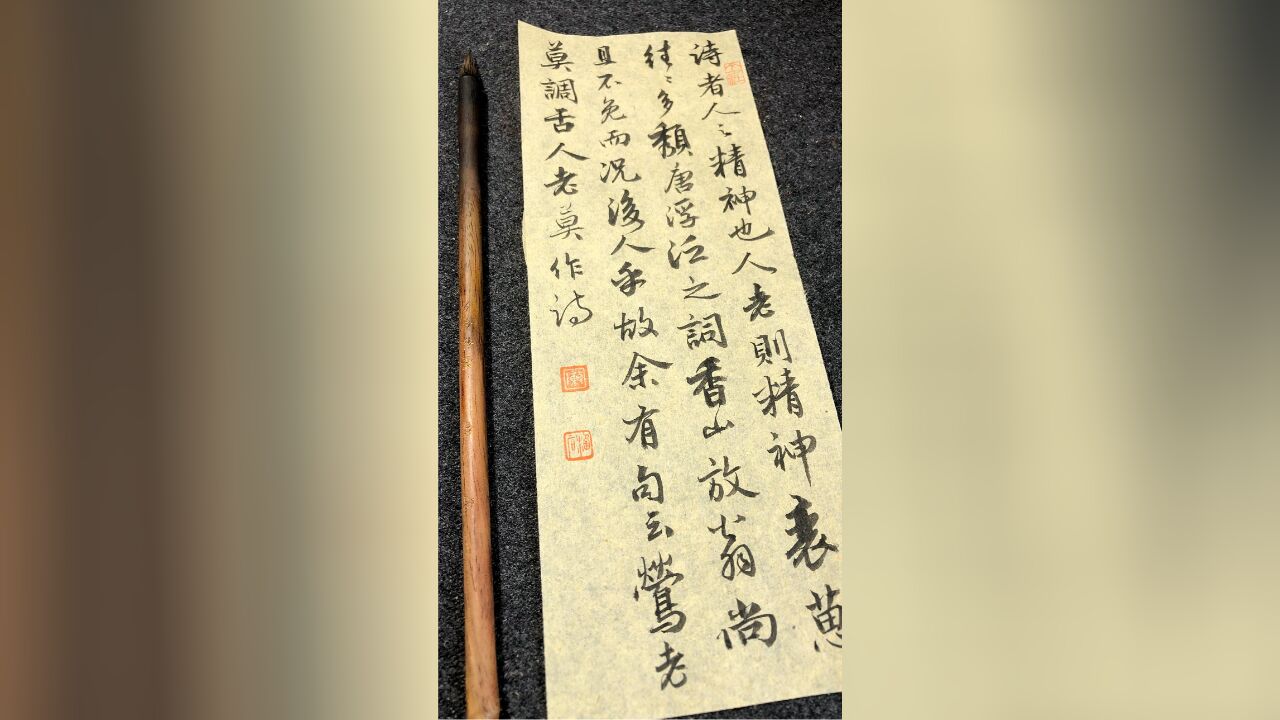 诗者人之精神也人老則精神衰葸
往〻多頽唐浮泛之詞香山放翁尚
且不免而况後人乎故余有句云鶯老
莫調舌人老莫作诗